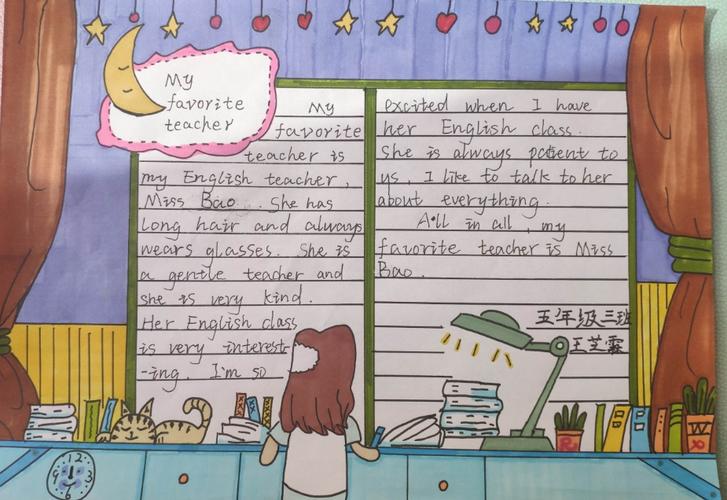 My
favorite
teacher
My
favorite
teacher is
my English teacher,
Miss Bao. She has
long hair and always
wears glasses. She is
a gentle teacher and
she is very kind.
Her English class
is very interest-
-ing. I'm so
excited when I have
her English class.
She is always patient to
us, I like to talk to her
about everything.
All in all, my
favorite teacher is Miss
Bao.
五年级三班
王芝霖